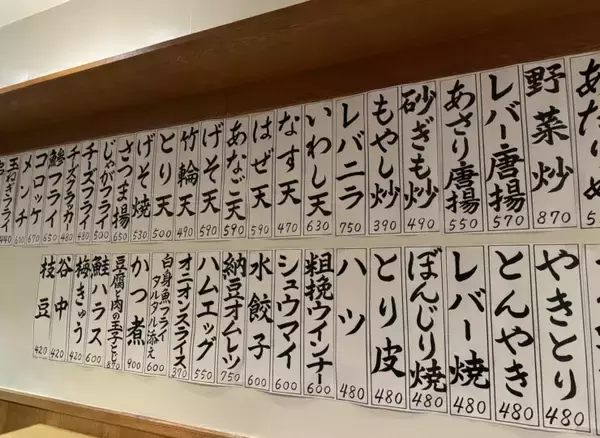 あたりめ
野菜炒 870
レバー唐揚 570
あさり唐揚 550
砂ぎも炒 490
もやし炒 390
レバニラ 750
いわし天 630
なす天 470
はぜ天 590
あなご天 590
げそ天 590
竹輪天 500
とり天 500
げそ焼 530
さつま揚
じゃがフライ 500
チーズフライ 480
チーズクラッカ 480
鯵フライ 650
コロッケ
メンチ
玉ねぎフライ
やきとり 480
とんやき 480
レバー焼 480
ぼんじり焼 480
とり皮 480
ハツ 480
粗挽ウインナー 600
シュウマイ 600
水餃子 600
納豆オムレツ 750
ハムエッグ 550
オニオンスライス 370
白身魚フライ
タルタル添え 600
かつ煮 900
豆腐と肉の玉子とじ
鮭ハラス 600
梅きゅう 420
谷中 420
枝豆 420